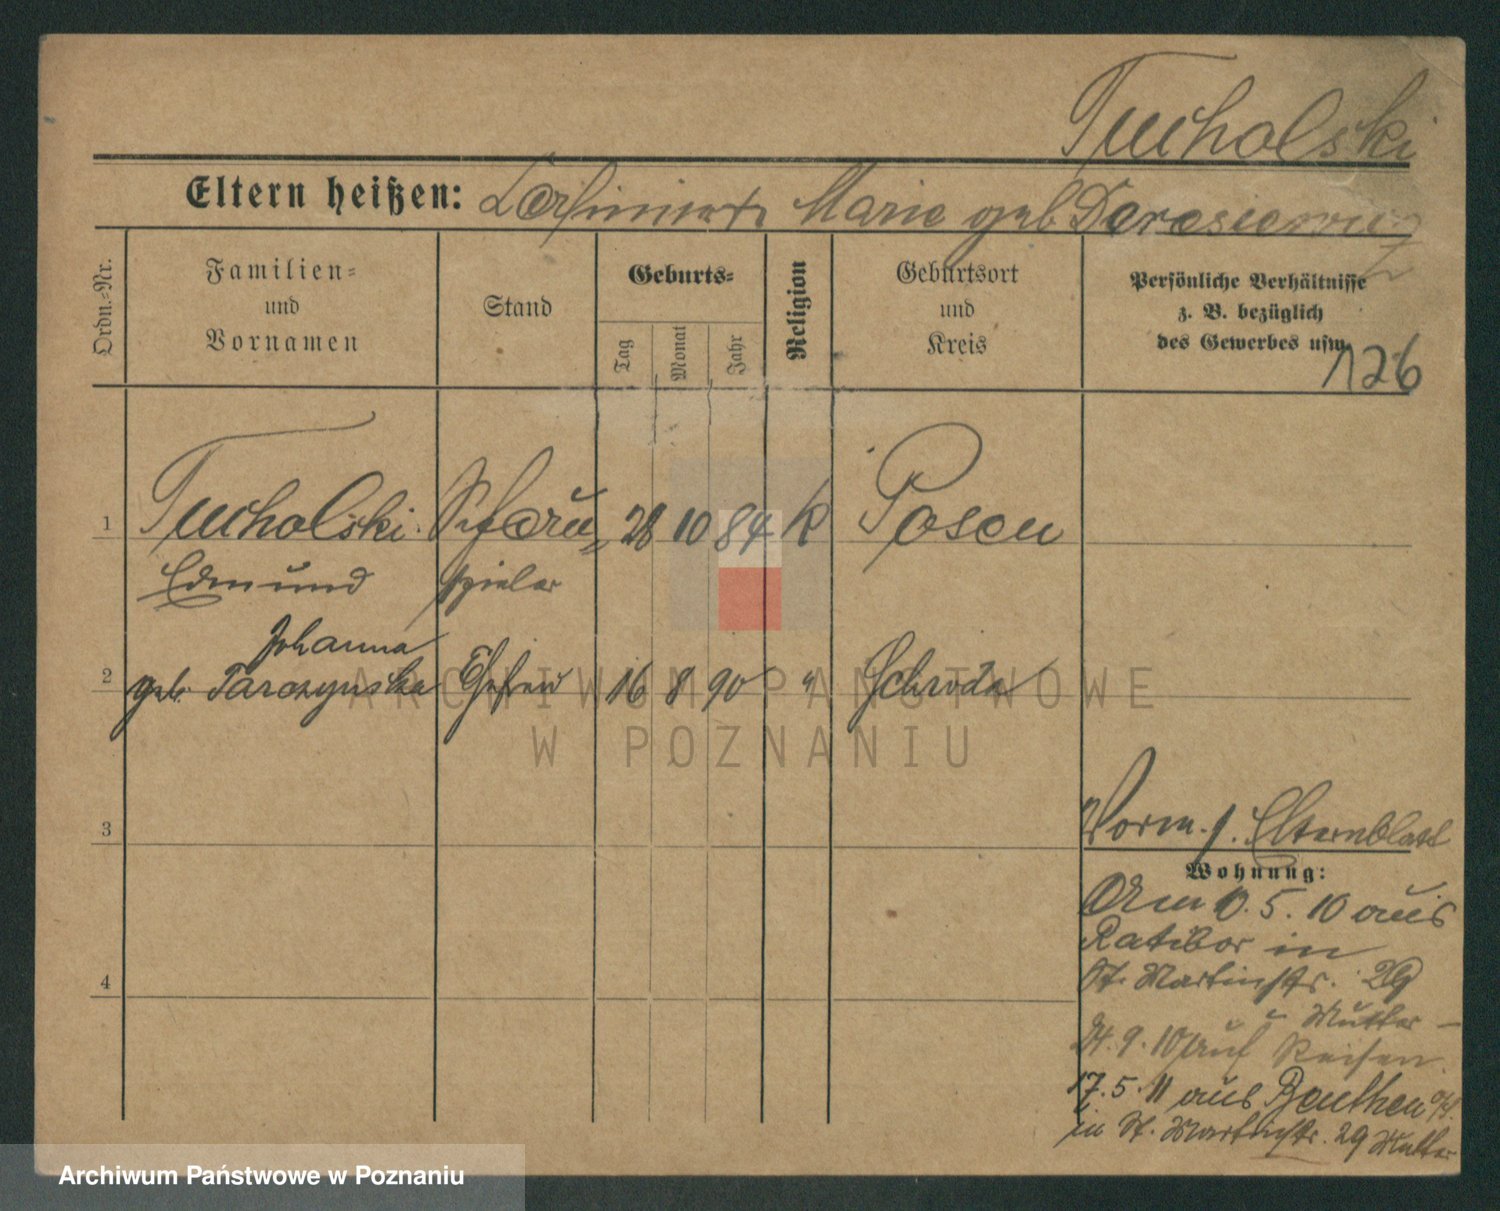 Tucholski
Eltern heißen: Marie geb
Ordn.=Nr.
Familien=
und
Vornamen
Stand
Geburts=
Tag
Monat
Jahr
Religion
Geburtsort
und
Kreis
Persönliche Verhältnisse
z. B. bezüglich
des Gewerbes usw.
126
1 Tucholski Schau= 28 10 84 k Posen
Edmund spieler
Johanna
2 geb. Tarczynska Ehefrau 16 8 90 " Schroda
3
Vorm. s. Elternblatt
Wohnung:
Am 10. 5. 10 aus
Ratibor in
St. Martinstr. 29
4
u Mutter –
24. 9. 10 auf Reisen
17. 5. 11 aus Beuthen o/S.
in St. Martinstr. 29 Mutter
ARCHIWUM PAŃSTWOWE
W POZNANIU
Archiwum Państwowe w Poznaniu